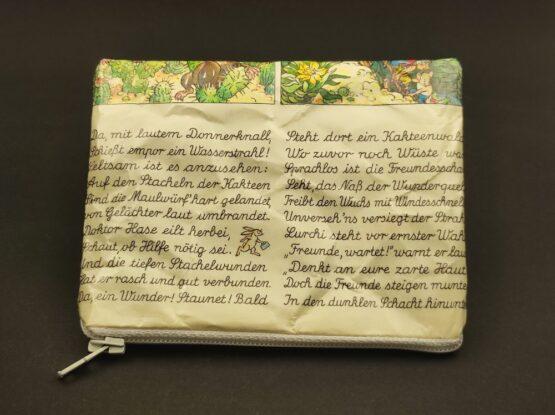 Da, mit lautem Donnerknall,
Schießt empor ein Wasserstrahl!
Seltsam ist es anzusehen:
Auf den Stacheln der Kakteen
Sind die Maulwürf' hart gelandet,
Von Gelächter laut umbrandet.
Doktor Hase eilt herbei,
Schaut, ob Hilfe nötig sei.
Und die tiefen Stachelwunden
Hat er rasch und gut verbunden
Da, ein Wunder! Staunet! Bald
Steht dort ein Kakteenwald
Wo zuvor noch Wüste wa
Sprachlos ist die Freundesscha
Seht, das Naß der Wunderquel
Treibt den Wuchs mit Windesschnell
Unverseh'ns versiegt der Strah
Lurchi steht vor ernster Wah
„Freunde, wartet!" warnt er lau
„Denkt an eure zarte Haut
Doch die Freunde steigen munte
In den dunklen Schacht hinunte